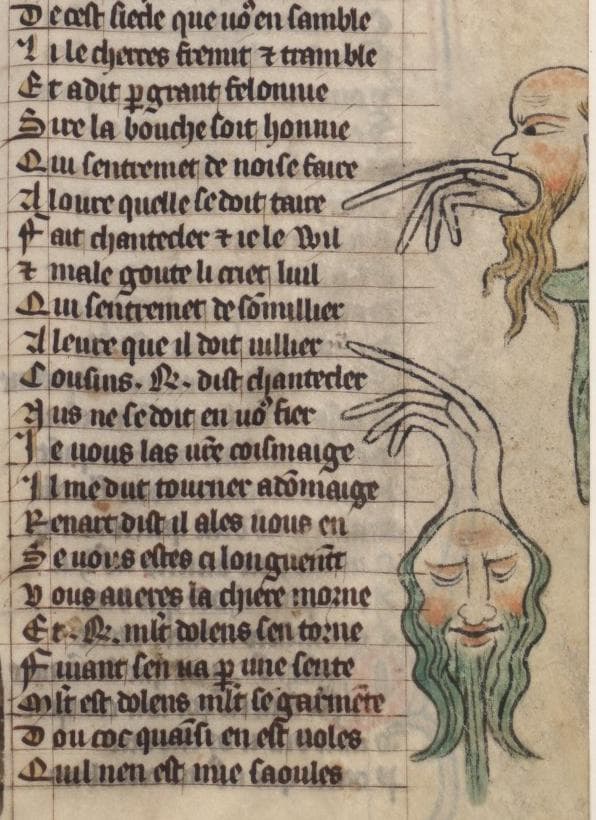 De cest siecle que uo᷒ en samble
Li lecherres fremit ⁊ tramble
Et a dit ꝑ grant felonnie
Sire la bouche soit honnie
Qui sentremet de noise faire
A loure quelle se doit taire
Fait chantecler ⁊ ie le wil
⁊ male goute li criet luil
Qui sentremet de sõmillier
A leure que il doit uillier
Cousins .R. dist chantecler
Nus ne se doit en uo᷒ fier
Je uous las ur̃e coismaige
Il me dut tourner a dõmaige
Renart dist il ales uous en
Se uous estes ci longuem̃t
Vous aueres la chiere morne
Et .R. ml̃t dolens sen torne
Fuiant sen ua ꝑ une sente
Ml̃t est dolens ml̃t se garmẽte
Dou coc quaĩsi en est uoles
Quil nen est mie saoules